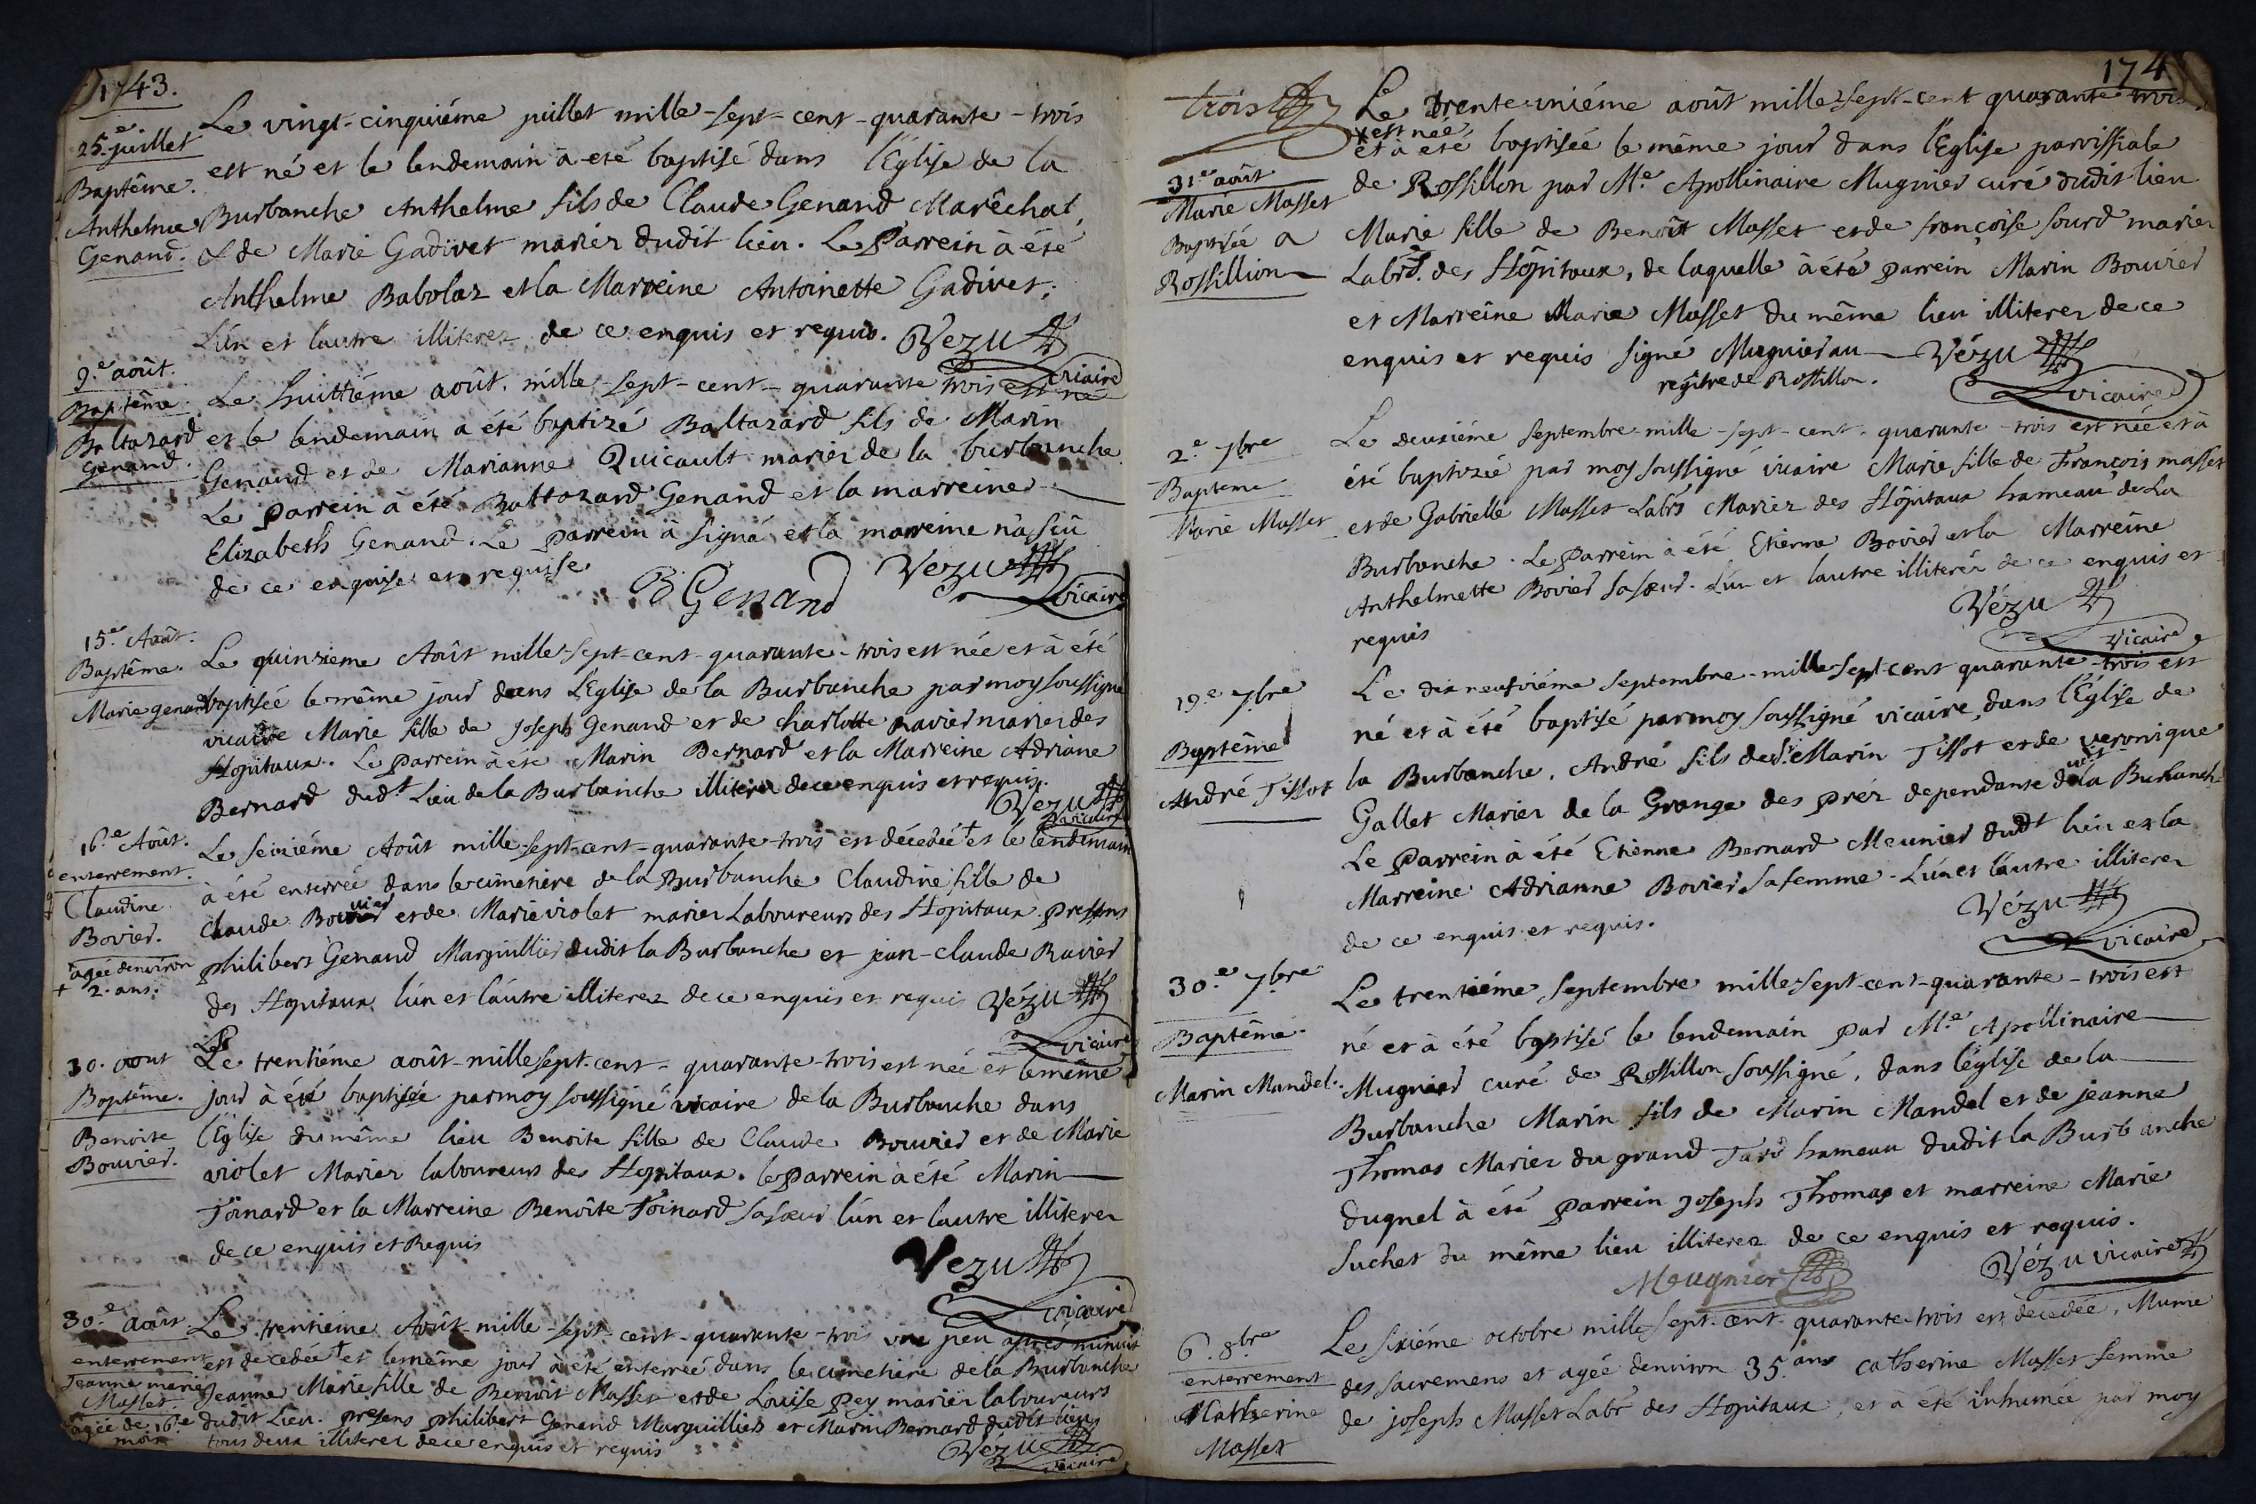 1743.
25.e juillet
Baptême.
Anthelme
Genand.
Le vingt-cinquiéme juillet mille-sept-cent-quarante-trois
est né et le lendemain à eté baptisé dans l'Eglise de la
Burbanche Anthelme fils de Claude Genand Marêchal,
& de Marie Gadivet mariez dudit lieu. Le Parrein à été
Anthelme Babolaz et la Marreine Antoinette Gadivet;
L'ún et l'autre illiterez de ce enquis et requis. Vezu
vicaire
9.e août.
Baptême.
Baltazard
Genand.
Le huittiéme août mille-sept-cent-quarante trois est né
et le lendemain a été baptizé Baltazard fils de Marin
Genand et de Marianne Quicault mariez de la burbanche
Le parrein à été Baltazard Genand et la marreine
Elizabeth Genand. Le parrein à signé et la marreine n'a sçû
de ce enquise et requise
B Genand Vezu
vicaire
15.e Août.
Baptême.
Marie genand
Le quinzieme Août mille-sept-cent-quarante-trois est née et à été
baptisée le même jour dans L'Eglise de la Burbanche par moy soussigné
vicaire Marie fille de joseph Genand et de charlotte ravier mariez des
Hopitaux. Le Parrein à été Marin Bernard et la Marreine Adriane
Bernard dud.t Lieu de la Burbanche illiterez de ce enquis et requis.
Vezu
vicaire
16.e Août.
enterrement.
Claudine
Bovier.
agée denviron
+ 2. ans.
Le seiziéme Août mille-sept-cent-quarante-trois est décedée + et le lendemain
à été enterrée dans le cimetiere de la Burbanche Claudine fille de
Claude Bouvier et de Marie violet mariez Laboureurs des Hopitaux. presens
philibert Genand Marguillier dudit la Burbanche et jean-claude Ravier
des Hopitaux l'ún et l'aútre illiterez de ce enquis et requis Vézu
vicaire
30. aout
Baptême.
Benoite
Bouvier.
Le trentiéme août-mille sept-cent-quarante-trois est née et le même
jour à été baptisée par moy soussigné vicaire de la Burbanche dans
l'Eglise du même lieu Benoite fille de Claude Bouvier et de Marie
violet Mariez laboureurs des Hopitaux. le parrein à été Marin
Joinard et la Marreine Benoîte Joinard sa sœur l'ún et l'autre illiterez
de ce enquis et Requis
Vezu
vicaire
30.e août.
enterrement
Jeanne marie
Masset.
agée de 16.e
mois
Le trentieme Août-mille-sept-cent-quarante-trois une peu apres minuit
est decedée + et le même jour à été enterrée dans le cimetiere de la Burbanche
Jeanne Marie fille de Benoit Masset et de Louise Pey mariez laboureurs
dudit Lieu. presens philibert Genand Marguillier et Marin Bernard dudit lieu
tous deux illiterez de ce enquis et requis
Vézu
vicaire
174
trois
31.e août
Marie Masset
Baptisée a
Rossillion
Le trente-uniéme août mille-sept-cent quarante trois
× est née
et à eté baptisée le même jour dans l'Eglise paroissiale
de Rossillon par M.e Apollinaire Mugnier curé dudit lieu
Marie fille de Benoit Masset et de françoise sourd mariez
Labrs. des Hôpitaux, de laquelle à été parrein Marin Bouvier
et Marreine Marie Masset du même lieu illiterez de ce
enquis et requis signé Mugnier au Vézu
registre de Rossillon. vicaire
2.e 7bre
Bapteme
Marie Masset
Le deuxiéme septembre-mille-sept-cent-quarante-trois est née et à
été baptizée par moy soussigné vicaire Marie fille de François masset
et de Gabrielle Masset Labrs Mariez des Hôpitaux hameau de La
Burbanche. Le parrein à été Etienne Bovier et la Marreine
Anthelmette Bovier sa sœur. L'ún et l'autre illiterez de ce enquis et
requis
Vézu
vicaire
19.e 7bre
Baptême
André Tissot
Le dix neufviéme septembre-mille-sept-cent quarante-trois est
né et à été baptisé par moy soussigné vicaire, dans l'Eglise de
la Burbanche. André fils de sr. Marin Tissot et de veronique
Gallet Mariez de la Grange des préz dependanse de la Burbanche
Le parrein à été Etienne Bernard Meunier dudt lieu et la
Marreine Adrianne Bovier sa femme. L'ún et l'autre illiterez
de ce enquis et requis.
Vézu
vicaire
30.e 7bre
Baptême.
Marin Mandel.
Le trentiéme septembre mille-sept-cent-quarante-trois est
né et à été baptisé le lendemain par M.e Apollinaire
Mugnier curé de Rossillon soussigné, dans l'église de la
Burbanche Marin fils de Marin Mandel et de jeanne
Thomas Mariez du grand Tard hameau dudit la Burbanche
duquel à été parrein joseph Thomas et marreine Marie
suchet du même lieu illiterez de ce enquis et requis.
Meugnier Vézu vicaire
6. 8bre
enterrement
Catherine
Masset
Le sixiéme octobre mille-sept-cent-quarante-trois est decedée, Munie
des sacremens et agée denviron 35. ans catherine Masset femme
de joseph Masset Labr des Hopitaux, et à été inhumée par moy